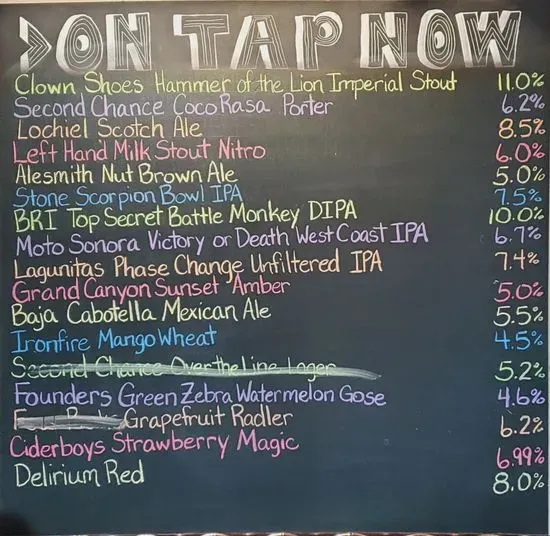 ON TAP NOW
Clown Shoes Hammer of the Lion Imperial Stout 11.0%
Second Chance CocoRasa Porter 6.2%
Lochiel Scotch Ale 8.5%
Left Hand Milk Stout Nitro 6.0%
Alesmith Nut Brown Ale 5.0%
Stone Scorpion Bowl IPA 7.5%
BRI Top Secret Battle Monkey DIPA 10.0%
Moto Sonora Victory or Death West Coast IPA 6.7%
Lagunitas Phase Change Unfiltered IPA 7.4%
Grand Canyon Sunset Amber 5.0%
Baja Cabotella Mexican Ale 5.5%
Ironfire Mango Wheat 4.5%
Second Chance Over the Line Lager 5.2%
Founders Green Zebra Watermelon Gose 4.6%
Grapefruit Radler 6.2%
Ciderboys Strawberry Magic 6.99%
Delirium Red 8.0%